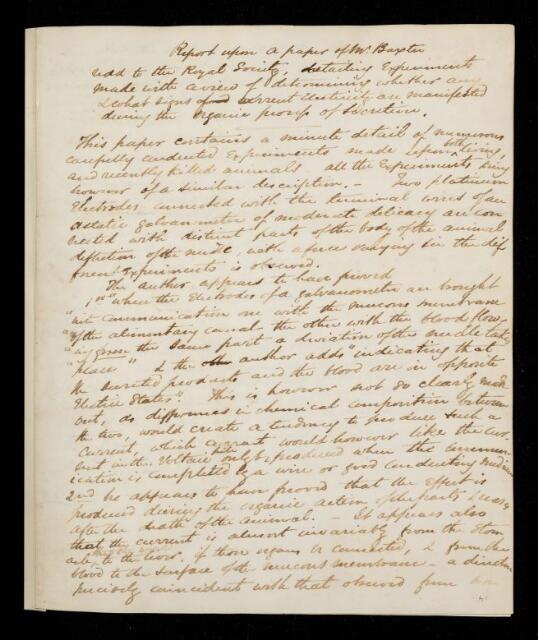 Report upon a paper of Mr. Baxter
read to the Royal Society, detailing Experiments
made with a view of determining whether any
& what signs of current Electricity are manifested
during the organic process of Secretion.
This paper contains a minute detail of numerous
carefully conducted Experiments made upon both living,
and recently killed animals all the Experiments being
however of a similar description. – Two platinum
Electrodes connected with the terminal wires of an
astatic galvanometer of moderate delicacy are con
nected with distinct parts of the body of the animal
deflection of the needle, with a force varying in the dif
ferent Experiments is observed.
The author appears to have proved
1st "when the Electrodes of a galvanometer are brought
"into communication one with the mucous membrane
"of the alimentary canal the other with the blood flow
"ing from the same part a deviation of the needle takes
"place" & the author adds "indicating that
the secreted products and the blood are in opposite
Electric States". This is however not so clearly made
out, as differences in chemical composition between
the two, would create a tendency to produce such a
current, which current would however like the cur
rent in the Voltaic only be produced when the commun
ication is completed by a wire or good conducting medium
2nd he appears to have proved that the Effect is
produced during the organic action of the parts & ceases
after the death of the animal. – It appears also
that the current is almost invariably from the Stom
ach, to the liver, if those organs be connected, & from the
blood to the surface of the mucous membrane – a direction
precisely coincident with that observed from